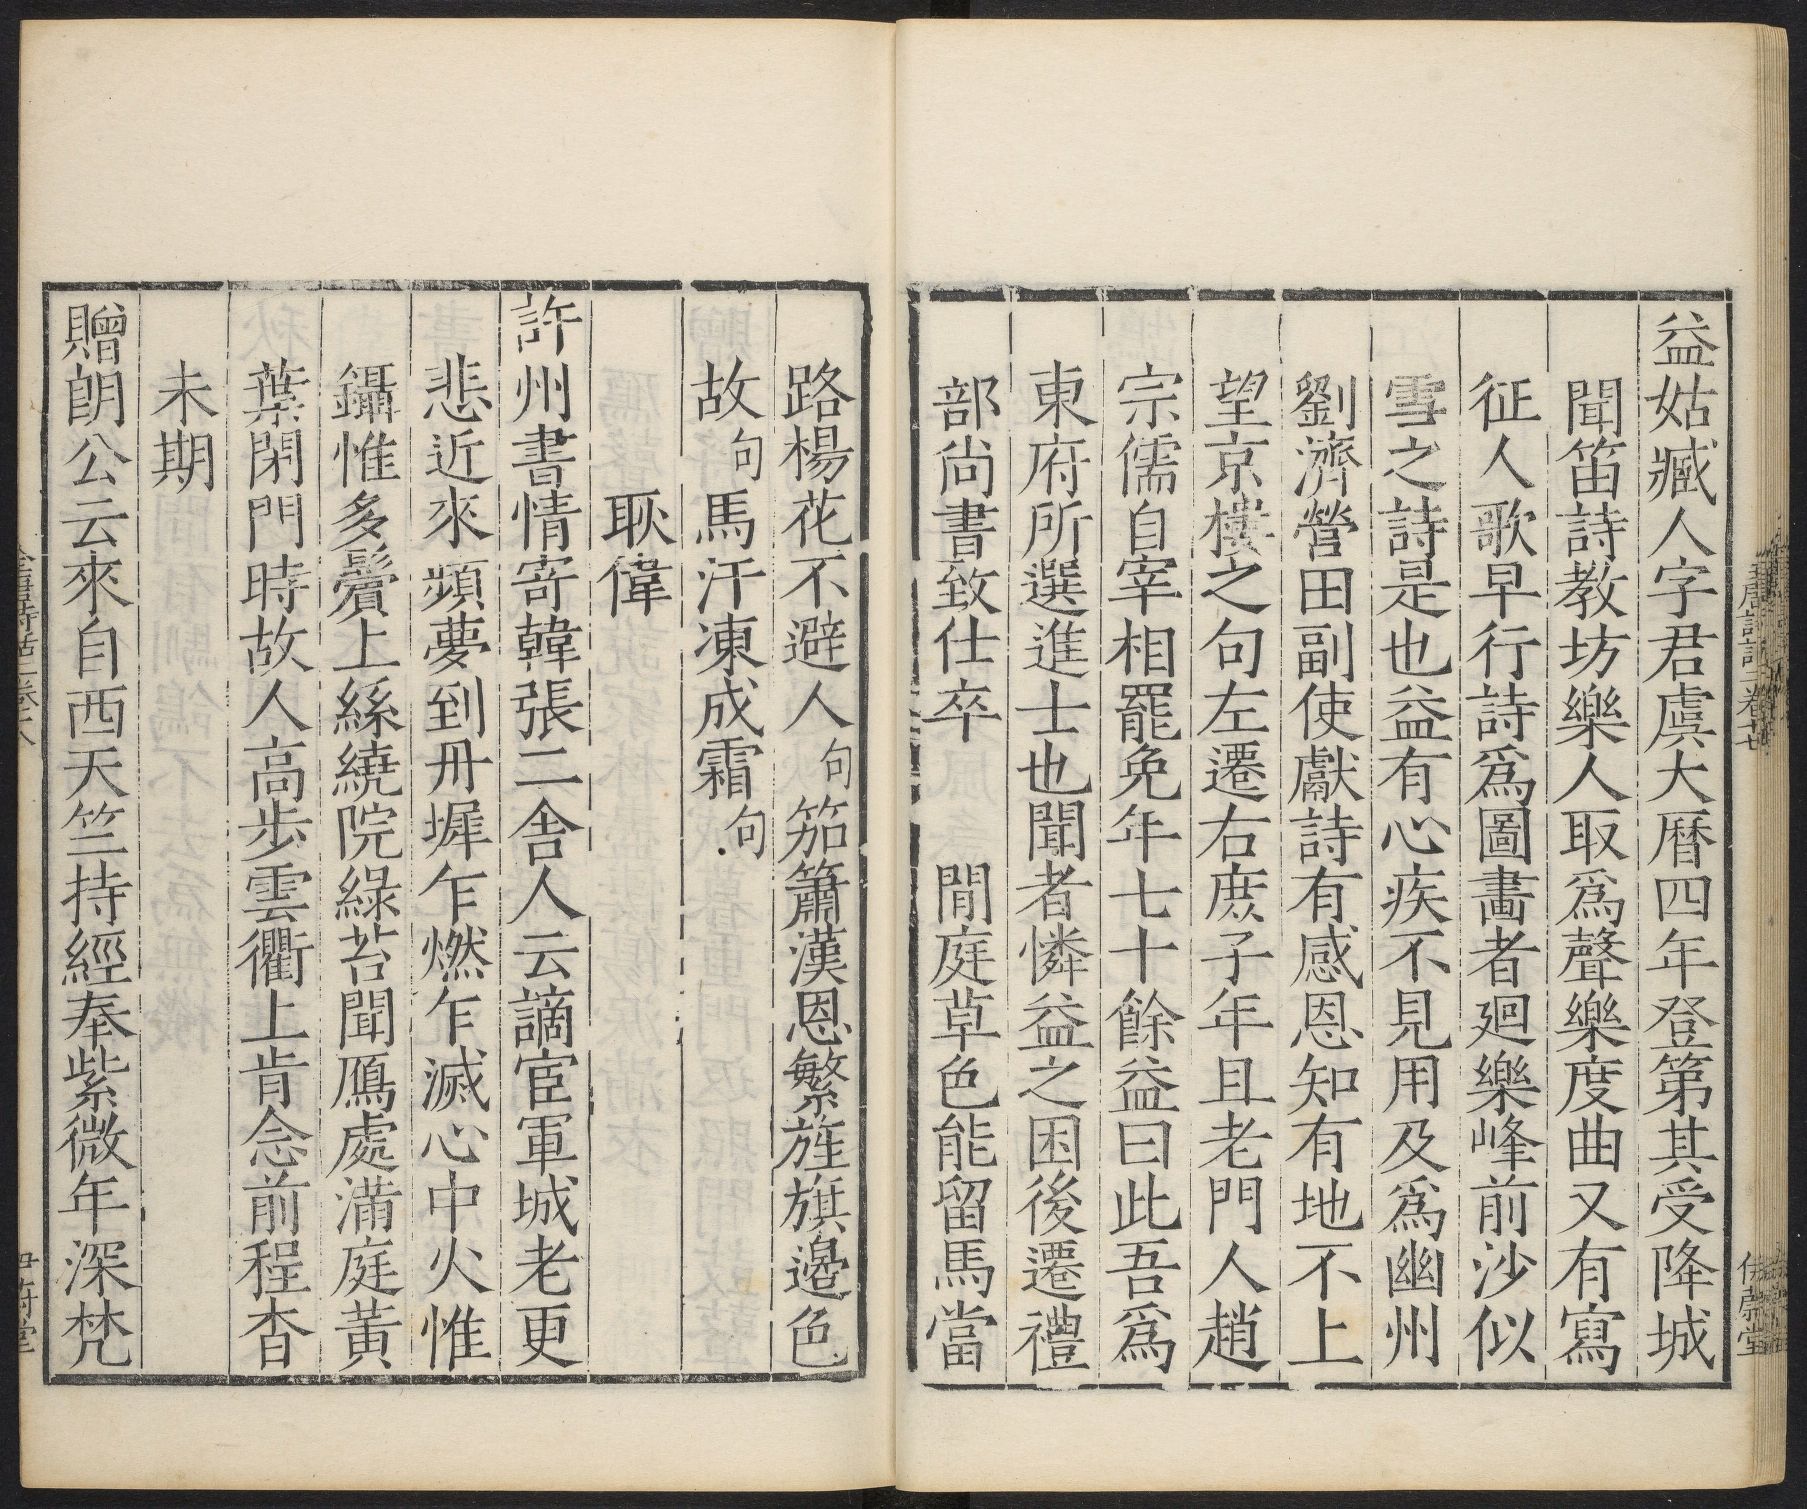 益姑臧人字君虞大曆四年登第其受降城
聞笛詩教坊樂人取爲聲樂度曲又有寫
征人歌早行詩爲圖畫者廻樂峰前沙似
雪之詩是也益有心疾不見用及爲幽州
劉濟營田副使獻詩有感恩知有地不上
望京樓之句左遷右庶子年且老門人趙
宗儒自宰相罷免年七十餘益曰此吾爲
東府所選進士也聞者憐益之困後遷禮
部尚書致仕卒　閒庭草色能留馬當
路楊花不避人句笳簫漢恩繁旌旗邊色
故句馬汗凍成霜句
耿偉
許州書情寄韓張二舍人云謫宦軍城老更
悲近來頻夢到丹墀乍燃乍滅心中火惟
鑷惟多鬢上絲繞院綠苔聞鴈處滿庭黃
葉閉門時故人高步雲衢上肯念前程杳
未期
贈朗公云來自西天竺持經奉紫微年深梵